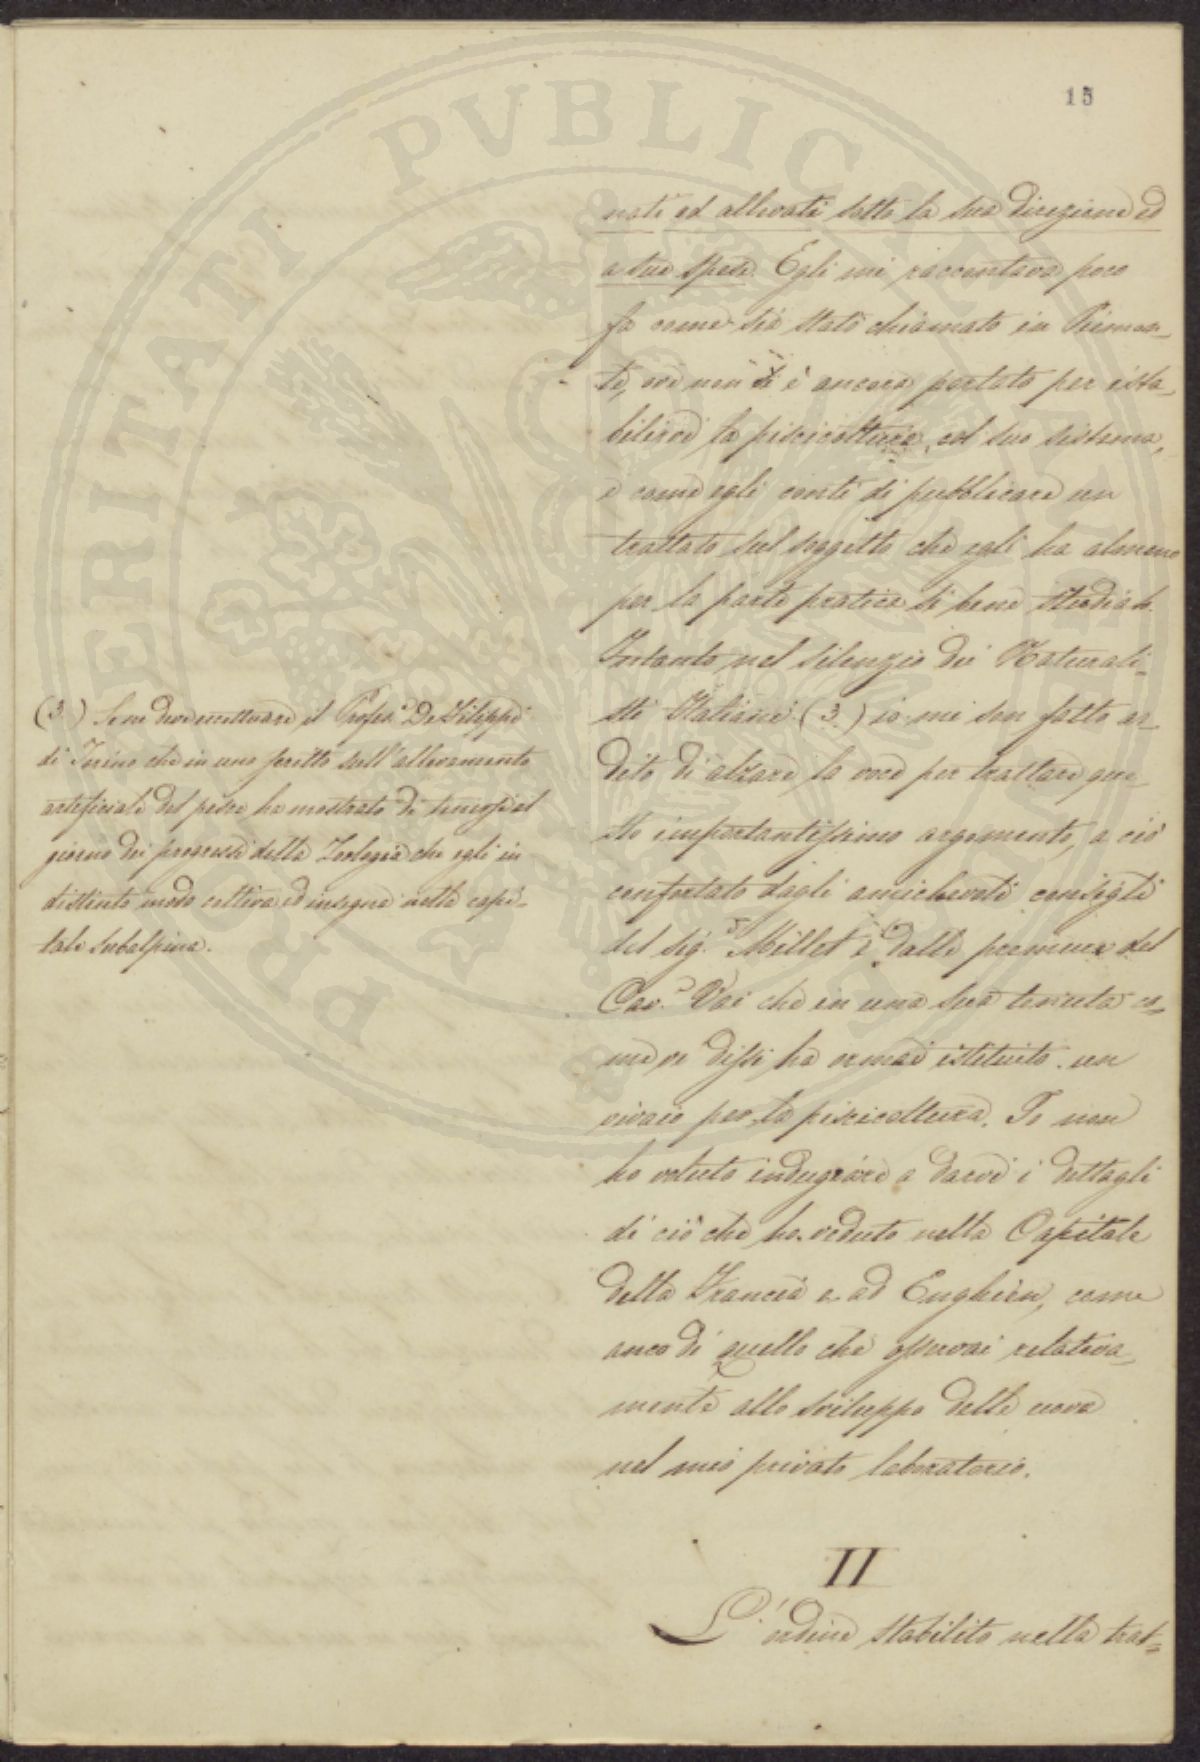 15
nati ed allevati sotto la sua direzione ed
a sue spese. Egli mi raccontava poco
fa come sia stato chiamato in Piemon-
te, ove non si è ancora portato per ista-
bilirvi la piscicoltura col suo sistema,
e come egli conti di pubblicare un
trattato sul soggetto che egli ha almeno
per la parte pratica sì bene studiato.
Intanto nel silenzio dei Naturali-
sti Italiani (3) io mi son fatto ar-
dito di alzare la voce per trattare que-
sto importantissimo argomento, a ciò
confortato dagli amichevoli consigli
del sig.r Millet e dalle premure del
Cav.e Vai che in una sua tenuta co-
me vi dissi ha ormai istituito un
vivaio per la piscicoltura. Io non
ho voluto indugiare a darvi i dettagli
di ciò che ho veduto nella Capitale
della Francia e ad Enghien, come
anco di quello che osservai relativa-
mente allo sviluppo delle uova
nel mio privato laboratorio.
II
L'ordine stabilito nella trat-
(3) Se ne deve eccettuare il Profes.e De Filippi
di Torino che in uno scritto sull'allevamento
artificiale del pesce ha mostrato di tenersi al
giorno dei progressi della Zoologia che egli in
distinto modo coltiva ed insegna nella capi-
tale subalpina.
PERITATI PVBLICAE